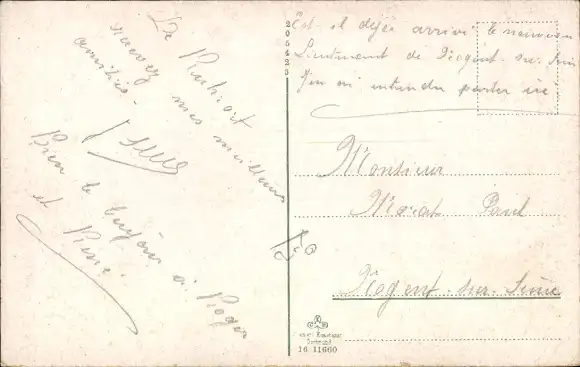 De
recevez mes meilleurs
amitiés.
Bien le bonjour à Roger
et René.
Est il déjà arrivé le nouveau
Lieutenant de Nogent-sur-Seine
J'en ai entendu parler ici
Monsieur
Morat Paul
Nogent-sur-Seine
205423
16 11660